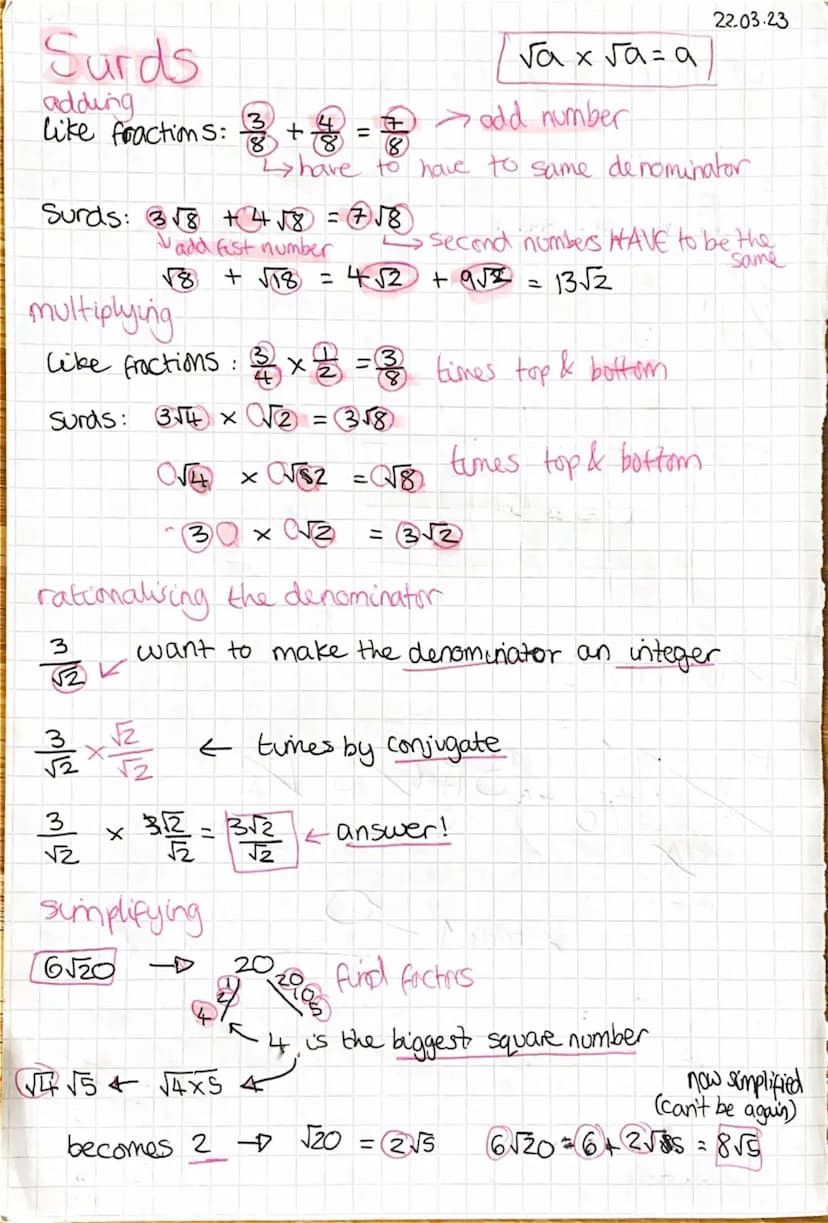 22.03.23
Surds
√a × √a = a
adding
like fractions: 3/8 + 4/8 = 7/8 → add number
↳ have to have to same denominator
Surds: 3√8 + 4√8 = 7√8
↳ add fist number ↳ second numbers HAVE to be the same
√8 + √18 = 4√2 + 9√2 = 13√2
multiplying
like fractions: 3/4 × 1/2 = 3/8 times top & bottom
surds: 3√4 × √2 = 3√8
√4 × √2 = √8 times top & bottom
3 × √2 = 3√2
rationalising the denominator
3/√2 ↙ want to make the denominator an integer
3/√2 × √2/√2 ← times by conjugate
3/√2 × 3√2/√2 = 3√2/√2 ← answer!
simplifying
6√20 → 20 find factors
1 20
2 10
4 5
4 is the biggest square number
√4 √5 ← √4×5 ←
now simplified
(can't be again)
becomes 2 → √20 = 2√5 6√20 = 6 + 2√5 = 8√5